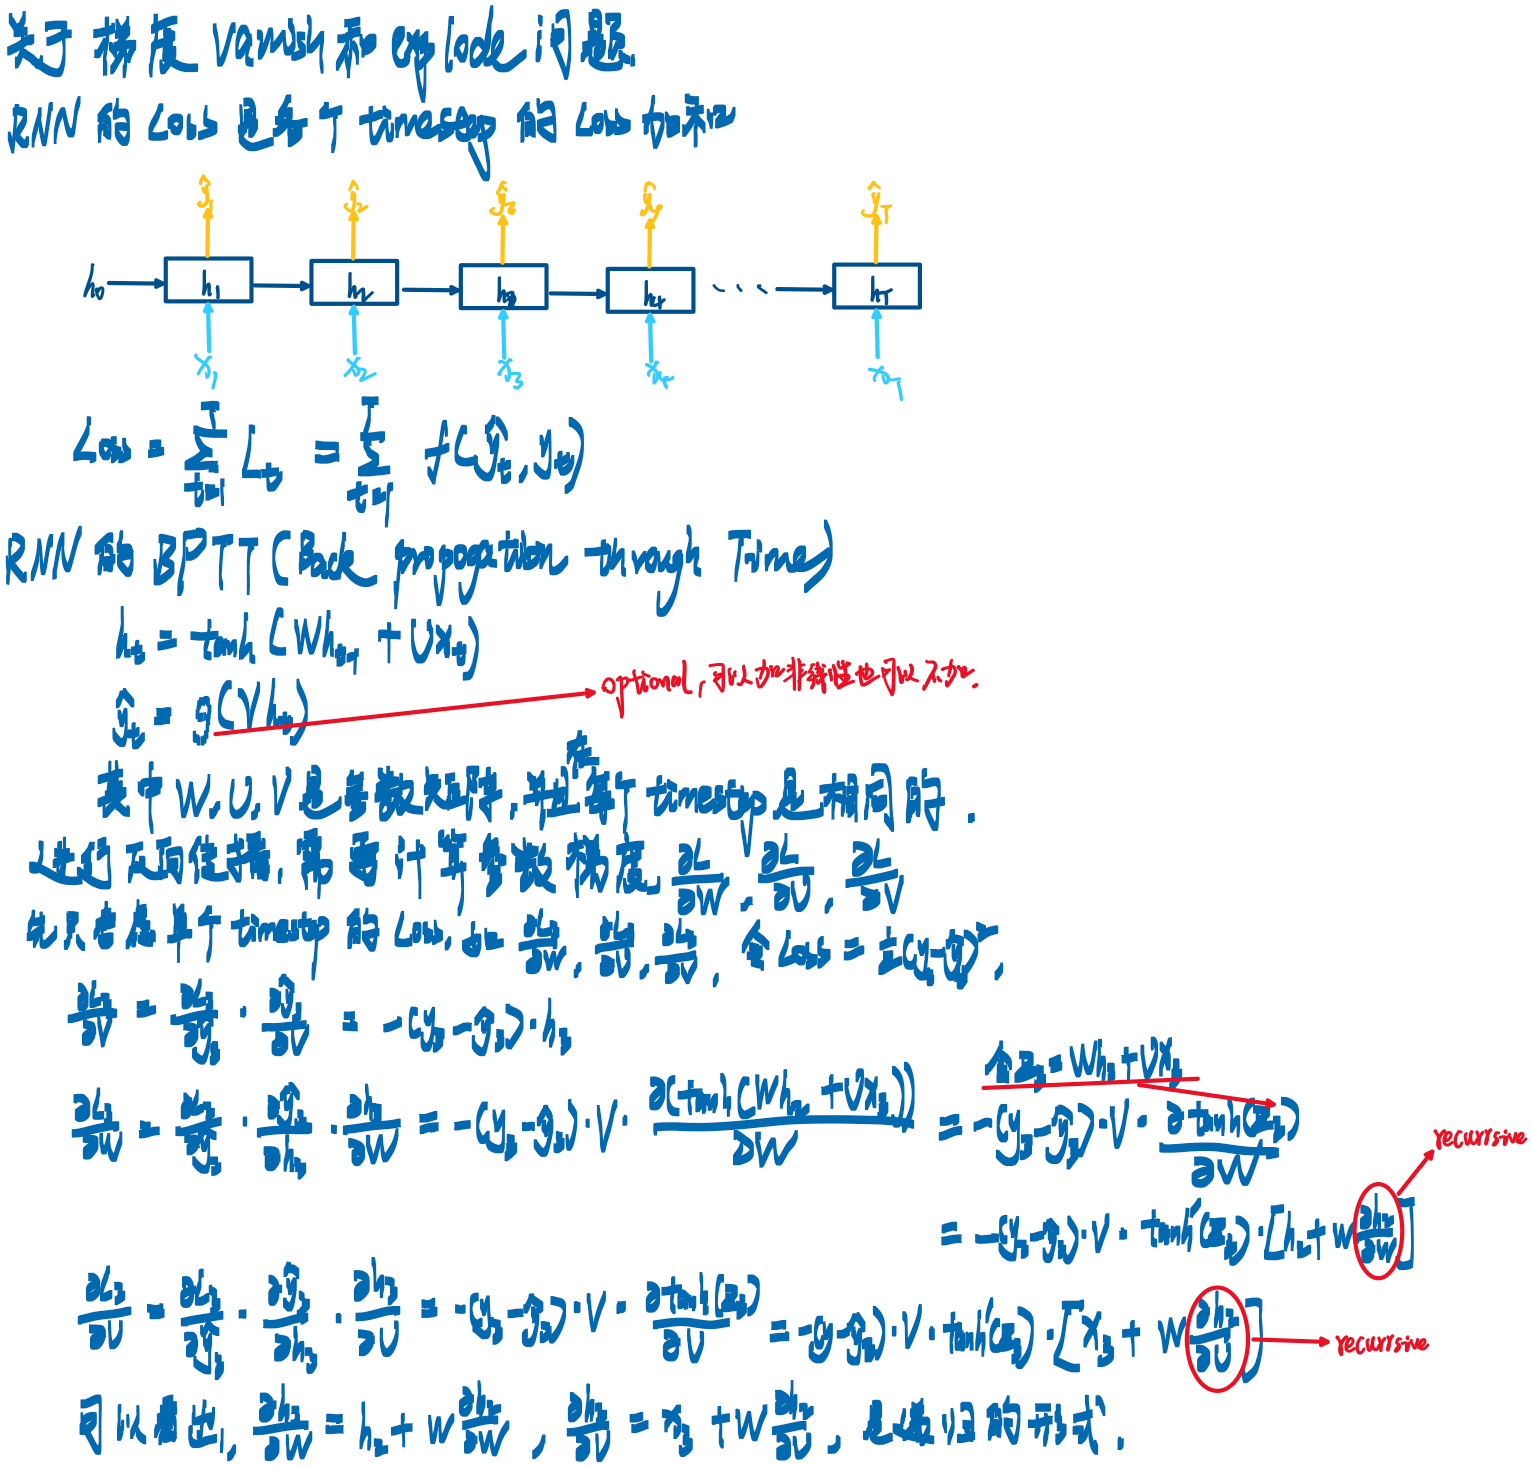 关于梯度 vanish 和 explode 问题.
RNN 的 Loss 是每个 timestep 的 Loss 加和
ŷ₁ ŷ₂ ŷ₃ ŷ₄ ŷ_T
h₀ h₁ h₂ h₃ h₄ ... h_T
x₁ x₂ x₃ x₄ x_T
Loss = Σ_{t=1}^{T} L_t = Σ_{t=1}^{T} f(ŷ_t, y_t)
RNN 的 BPTT (Back propogation through Time)
h_t = tanh(Wh_{t-1} + Ux_t)
optional, 可以加非线性也可以不加.
ŷ_t = g(Vh_t)
其中 W, U, V 是参数矩阵, 并且在每个 timestep 是相同的.
进行反向传播, 需要计算参数梯度 ∂L/∂W, ∂L/∂U, ∂L/∂V
先只考虑单个 timestep 的 Loss, ∂L₃/∂W, ∂L₃/∂U, ∂L₃/∂V, 令 Loss = ½(y-ŷ)²,
∂L₃/∂V = ∂L₃/∂ŷ₃ · ∂ŷ₃/∂V = -(y₃-ŷ₃)·h₃
令 z₃ = Wh₂ + Ux₃
∂L₃/∂W = ∂L₃/∂ŷ₃ · ∂ŷ₃/∂h₃ · ∂h₃/∂W = -(y₃-ŷ₃)·V· ∂(tanh(Wh₂ + Ux₃))/∂W = -(y₃-ŷ₃)·V· ∂tanh(z₃)/∂W
recurrsive
= -(y₃-ŷ₃)·V·tanh'(z₃)·[h₂ + W ∂h₂/∂W]
∂L₃/∂U = ∂L₃/∂ŷ₃ · ∂ŷ₃/∂h₃ · ∂h₃/∂U = -(y₃-ŷ₃)·V· ∂tanh(z₃)/∂U = -(y-ŷ₃)·V·tanh'(z₃)·[x₃ + W ∂h₂/∂U]
recurrsive
可以看出, ∂h₃/∂W = h₂ + W ∂h₂/∂W, ∂h₃/∂U = x₃ + W ∂h₂/∂U, 是递归的形式.